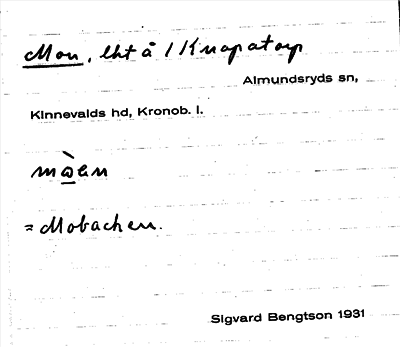 Mon, lht å 1 Knapatorp
Almundsryds sn,
Kinnevalds hd, Kronob. l.
mὼen
= Mobacken.
Sigvard Bengtson 1931